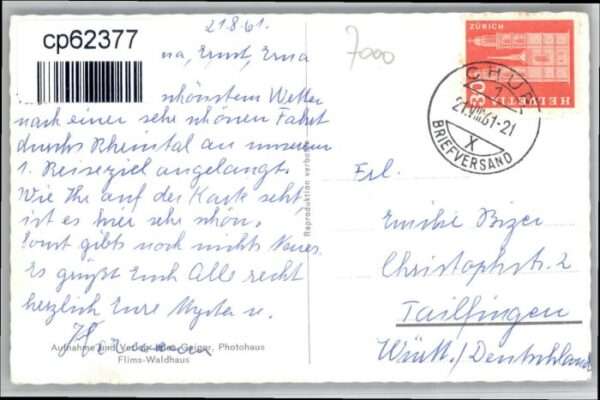 cp62377
21.8.61.
7000
Ernst, Erna
schönstem Wetter
nach einer sehr schönen Fahrt
durchs Rheintal an unserem
1. Reiseziel angelangt.
Wie Ihr auf der Karte seht,
ist es hier sehr schön.
Sonst gibts noch nichts Neues
Es grüßt Euch Alle recht
herzlich Eure
Aufnahme und Verlag Geiger, Photohaus
Flims-Waldhaus
Reproduktion verboten
ZÜRICH
30
HELVETIA
CHUR
1
21.VIII.61-21
X
BRIEFVERSAND
Frl.
Emilie Bizer
Christophstr. 2
Tailfingen
Württ./Deutschland